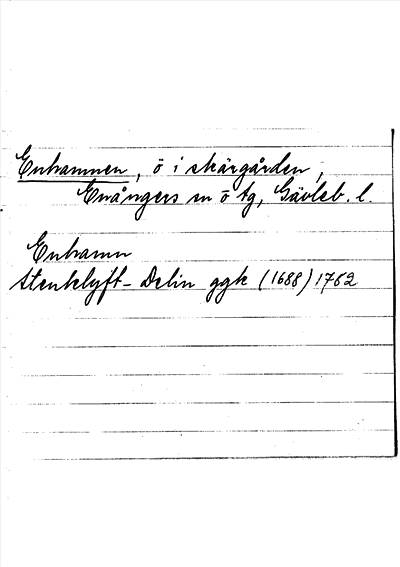 Enhamnen, ö i skärgården,
Enångers sn ö tg, Gävleb. l.
Enhamn
Stenklyft-Delin ggk (1688) 1762